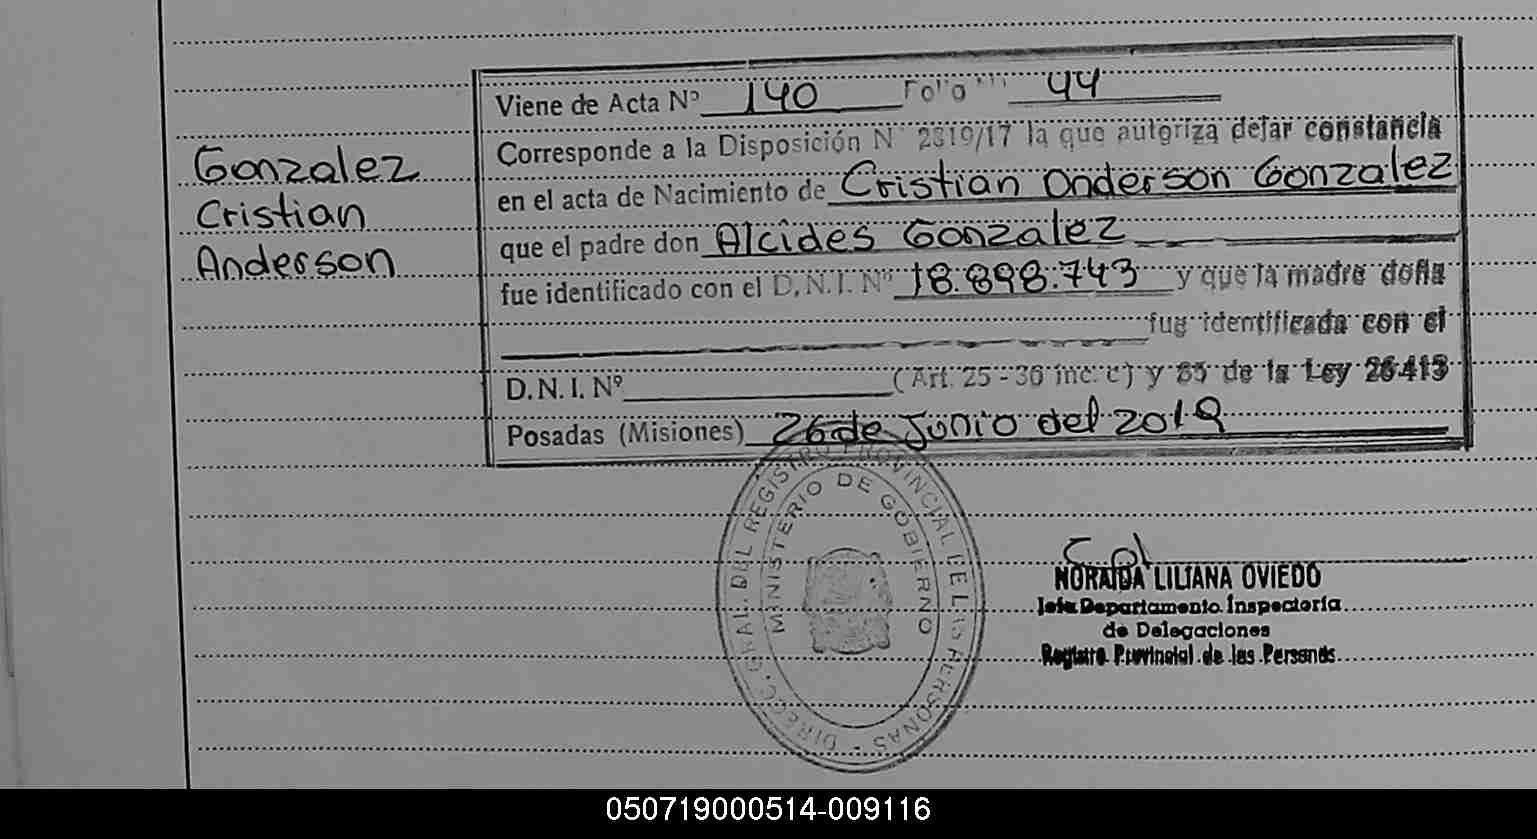 Gonzalez
Cristian
Anderson
Viene de Acta Nº 140 Folio Nº 44
Corresponde a la Disposición Nº 2819/17 la que autoriza dejar constancia
en el acta de Nacimiento de Cristian Anderson Gonzalez
que el padre don Alcides Gonzalez
fue identificado con el D.N.I. Nº 18.898.743 y que la madre doña
fue identificada con el
D.N.I. Nº (Art. 25 - 36 inc. c) y 85 de la Ley 26413
Posadas (Misiones) 26 de Junio del 2019
DIRECC. GRAL. DEL REGISTRO PROVINCIAL DE LAS PERSONAS -
MINISTERIO DE GOBIERNO
NORAIDA LILIANA OVIEDO
Jefa Departamento Inspectoría
de Delegaciones
Registro Provincial de las Personas
050719000514-009116